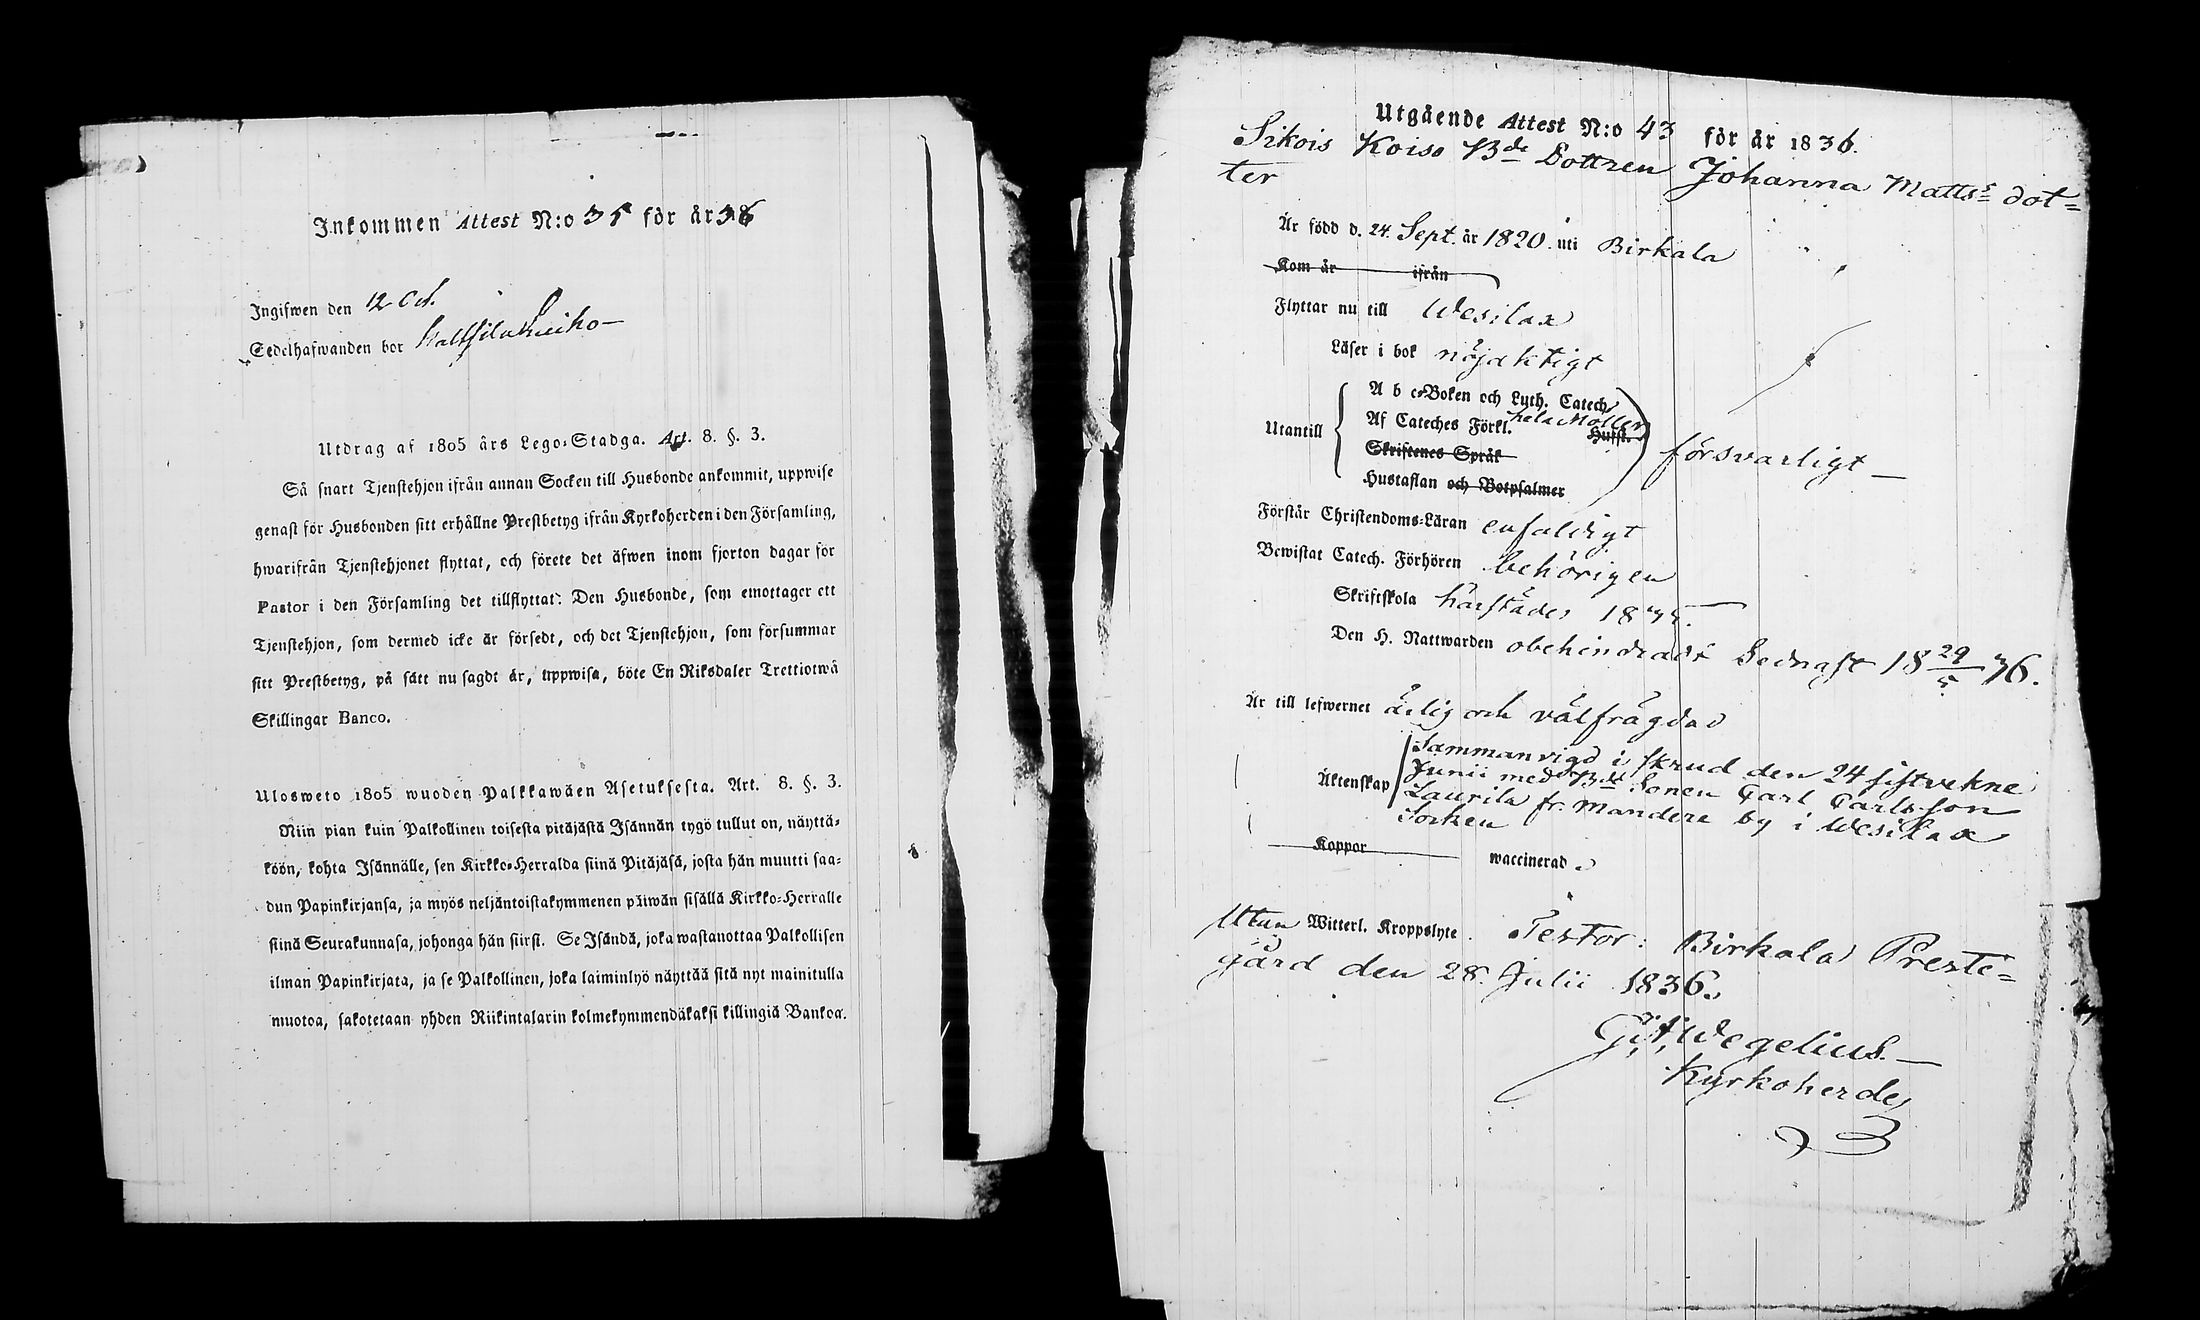 Inkommen Attest N:o 35 för år 36
Ingifwen den 12 Oct.
Sedelhafwanden bor
Utdrag af 1805 års Lego-Stadga. Art. 8. §. 3.
Så snart Tjenstehjon ifrån annan Socken till Husbonde ankommit, uppwise
genast för Husbonden sitt erhållne Prestbetyg ifrån Kyrkoherden i den Församling,
hwarifrån Tjenstehjonet flyttat, och förete det äfwen inom fjorton dagar för
Pastor i den Församling det tillflyttat: Den Husbonde, som emottager ett
Tjenstehjon, som dermed icke är försedt, och det Tjenstehjon, som försummar
sitt Prestbetyg, på sätt nu sagdt är, uppwisa, böte En Riksdaler Trettiotwå
Skillingar Banco.
Ulosweto 1805 wuoden Palkkawäen Asetuksesta. Art. 8. §. 3.
Niin pian kuin Palkollinen toisesta pitäjästä Isännän tygö tullut on, näyttä-
köön, kohta Isännälle, sen Kirkko-Herralda siinä Pitäjäsä, josta hän muutti saa-
dun Papinkirjansa, ja myös neljäntoistakymmenen päiwän sisällä Kirkko-Herralle
siinä Seurakunnasa, johonga hän siirsi. Se Isändä, joka wastanottaa Palkollisen
ilman Papinkirjata, ja se Palkollinen, joka laiminlyö näyttää sitä nyt mainitulla
muotoa, sakotetaan yhden Riikintalarin kolmekymmendäkaksi killingiä Bankoa.
Utgående Attest N:o 43 för år 1836.
Sikois Koiso Bde Dottren Johanna Matts dot=
ter
Är född d. 24. Sept. år 1820. uti Birkala
Kom år ifrån
Flyttar nu till Wesilax
Läser i bok nöjaktigt
Utantill
A b c-Boken och Luth. Catech.
Af Cateches Förkl. hela Möller Hufst.
Skriftenes Språk
Hustaflan och Botpsalmer
försvarligt
Förstår Christendoms-Läran enfaldigt
Bewistat Catech. Förhören behörigen
Skriftskola härstädes 1835.
Den H. Nattwarden obehindradt Sednast 18 29/5 36.
Är till lefwernet ärlig och välfrägdad
Äktenskap
Sammanvigd i Skrud den 24 sistvekne
Junii med Bde Sonen Carl Carlsson
Laurila fr. Mandera by i Wesilax
Socken
Koppor waccinerad.
Utan Witterl. Kroppslyte. Testor: Birkala Preste=
gård den 28. Julii 1836.
G: A: Wegelius.
Kyrkoherde